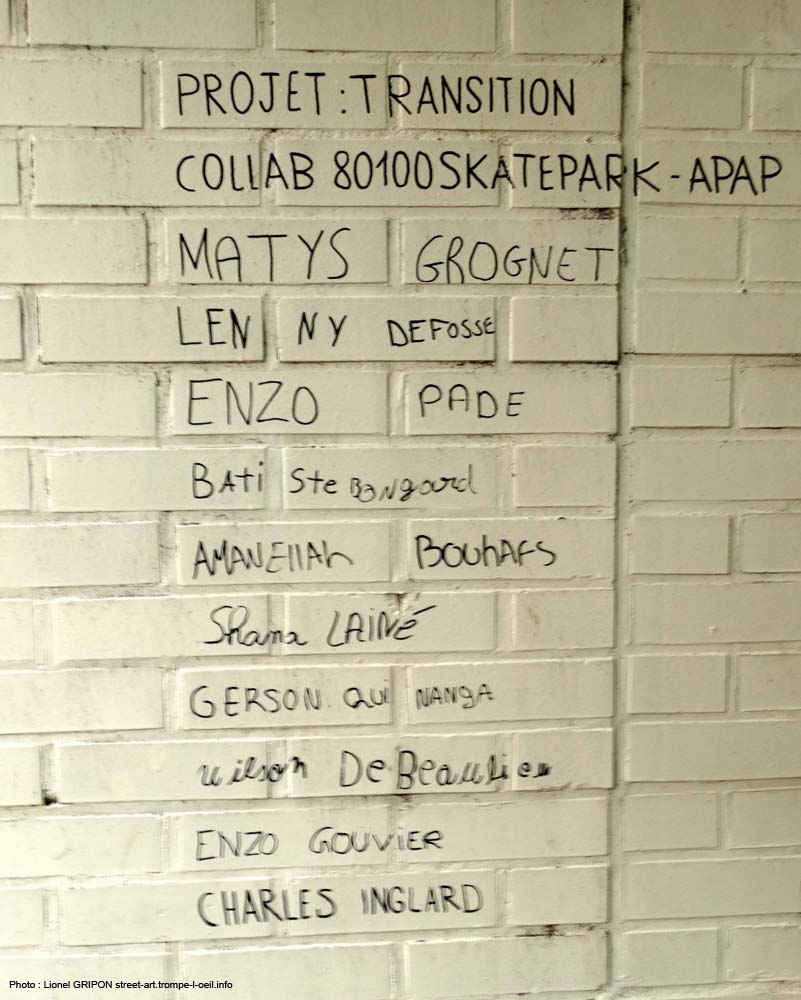 PROJET : TRANSITION
COLLAB 80100SKATEPARK - APAP
MATYS GROGNET
LENNY DEFOSSE
ENZO PADE
BAtiSte BONgard
AMANEllAh BOUhAFS
Shana LAINÉ
GERSON QUINANGA
wilson DeBeaulieu
ENZO GOUViER
CHARLES INGLARD
Photo : Lionel GRIPON street-art.trompe-l-oeil.info